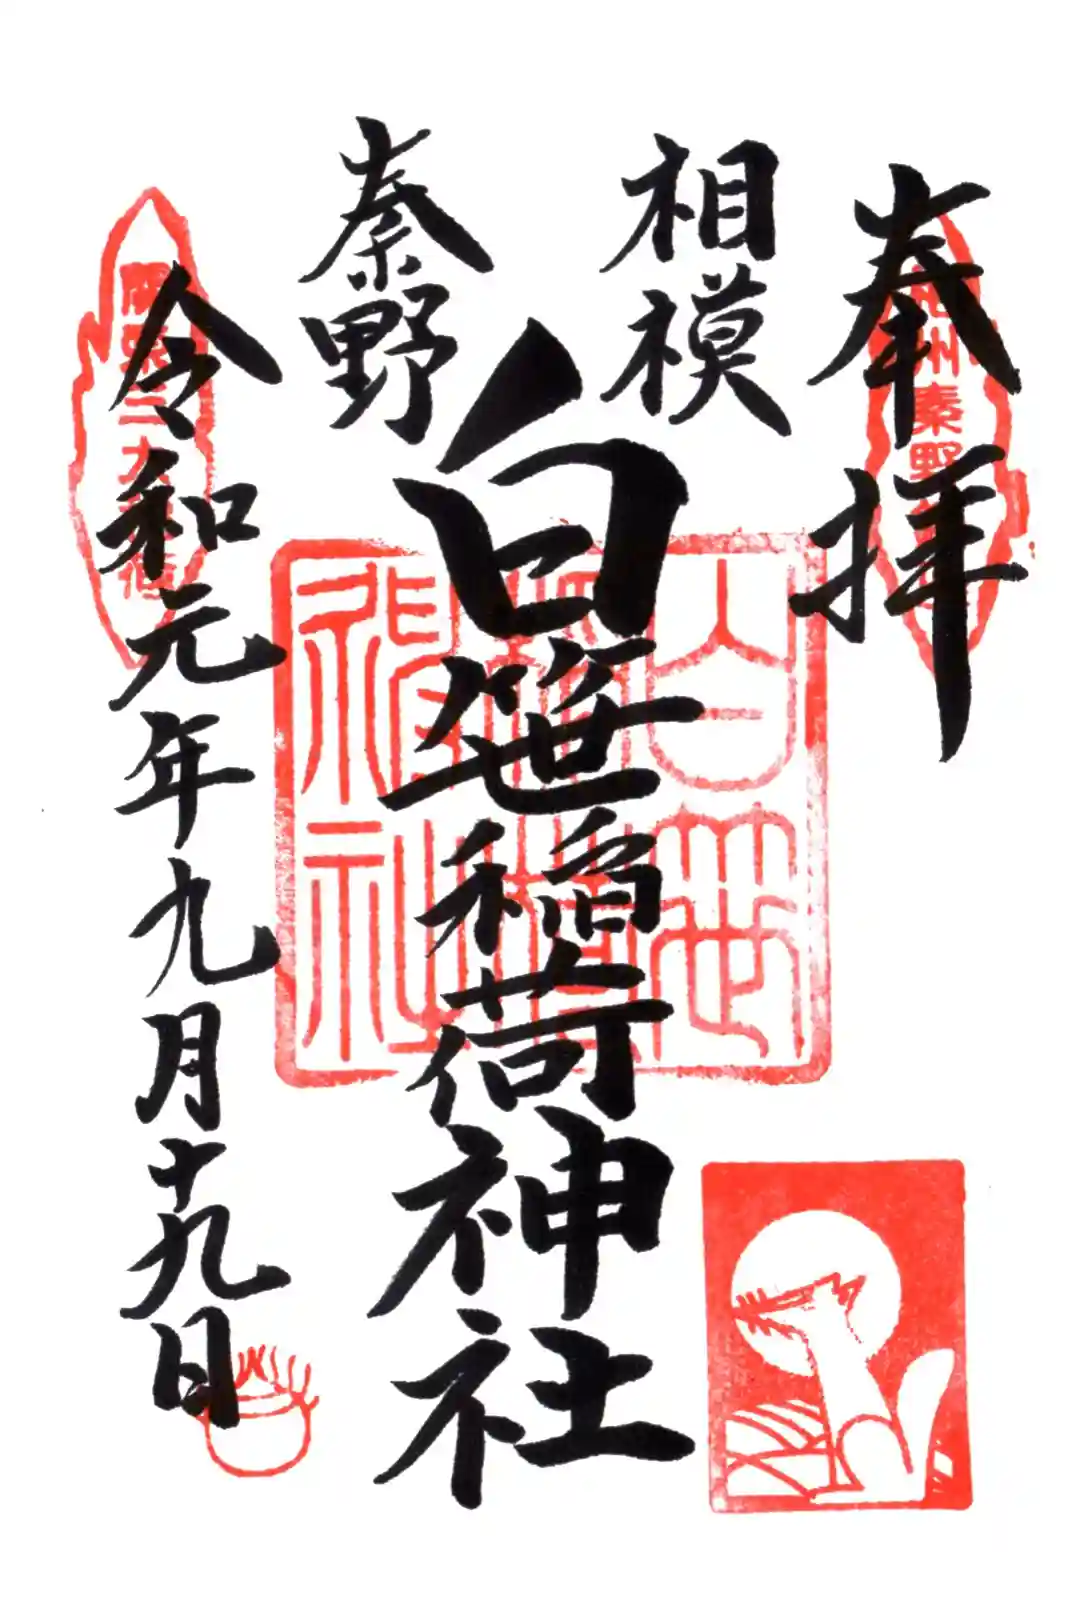 奉拝
相模
秦野
白笹稲荷神社
令和元年九月十九日
白笹稲荷神社